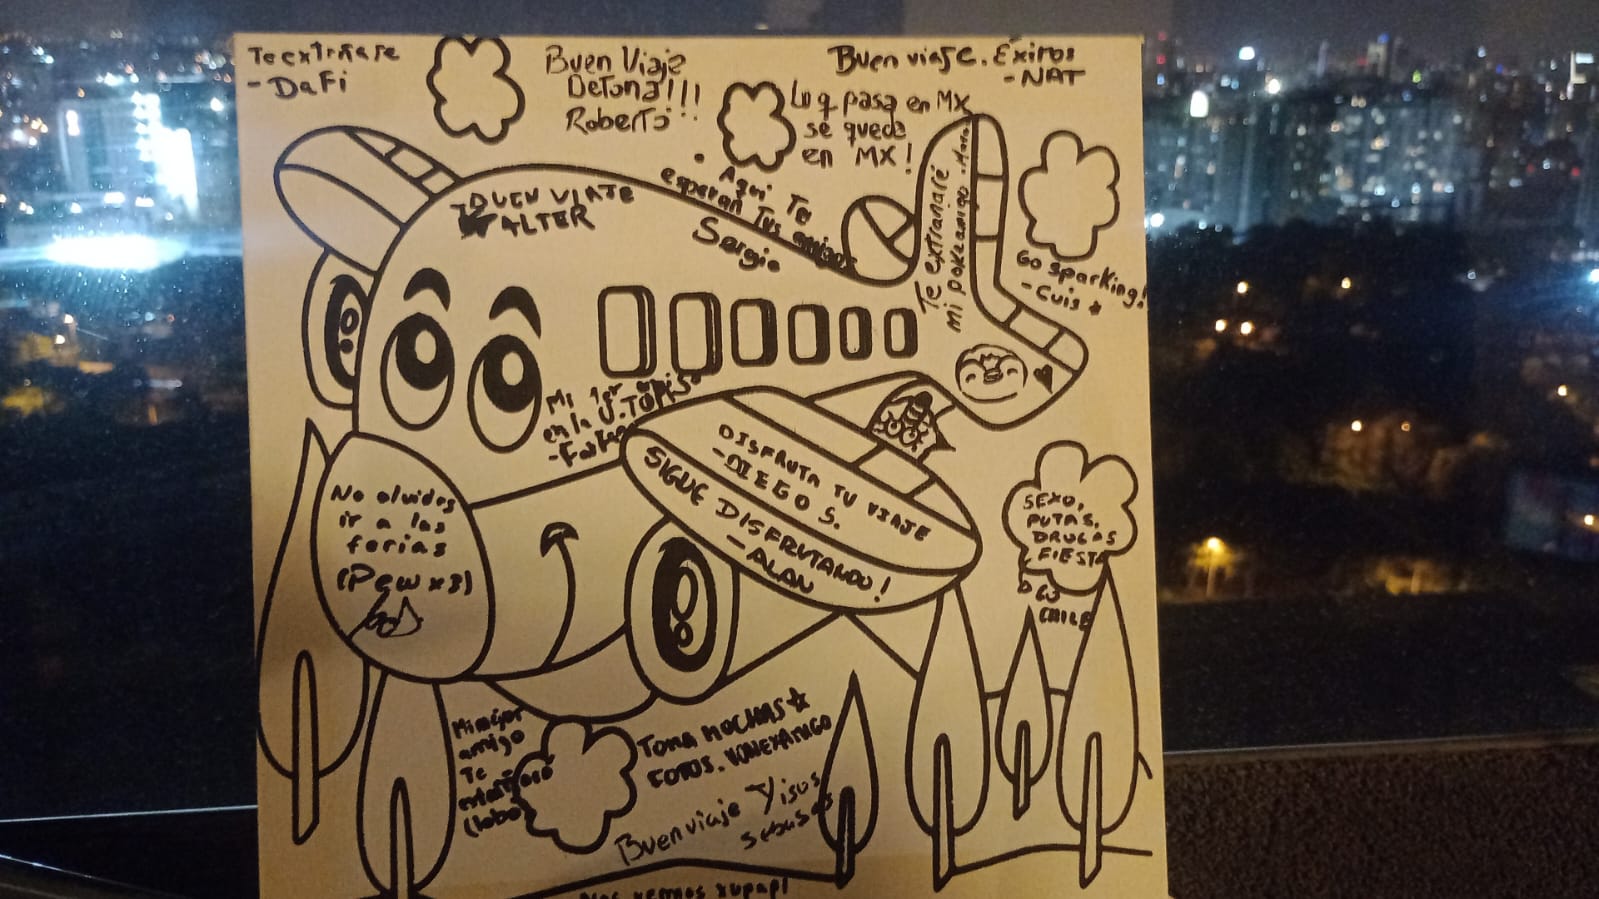 Te extrñare
-DaFi
Buen Viaje
Detona!!!
Roberto
Buen viaje. Éxitos
-NAT
Lo q pasa en MX
se queda
en MX!
Aqui Te
esperan Tus amigos
Sergio
BUEN VIAJE
WALTER
Te extrañaré
mi pokeamigo
Go sparking!
-Cuis
Mi 1er
en la
DISFRUTA TU VIAJE
-DIEGO S.
SIGUE DISFRUTANDO!
-ALAN
No olvides
ir a las
ferias
(Pew x3)
SEXO,
PUTAS,
DROGAS
FIESTA
CHILE
Mi mejor
amigo
Te
extrañaré
(lobo)
TOMA MUCHAS
FOTOS.
Buen viaje
Nos vemos